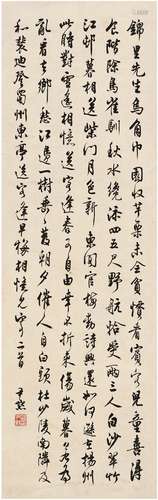 錦里先生烏角巾園收芋栗未全貧慣看賓客兒童喜得
食階除鳥雀馴秋水纔添四五尺野航恰受兩三人白沙翠竹
江邨暮相送柴門月色新東閣官梅動詩興還如何遜在揚州
此時對雪遙相憶送客逢春可自由幸不折來傷歲暮若為
亂看去鄉愁江邊一樹垂垂發朝夕催人自白頭杜少陵南鄰及
和裴迪登蜀州東亭送客逢早梅相憶見寄二首
尹默